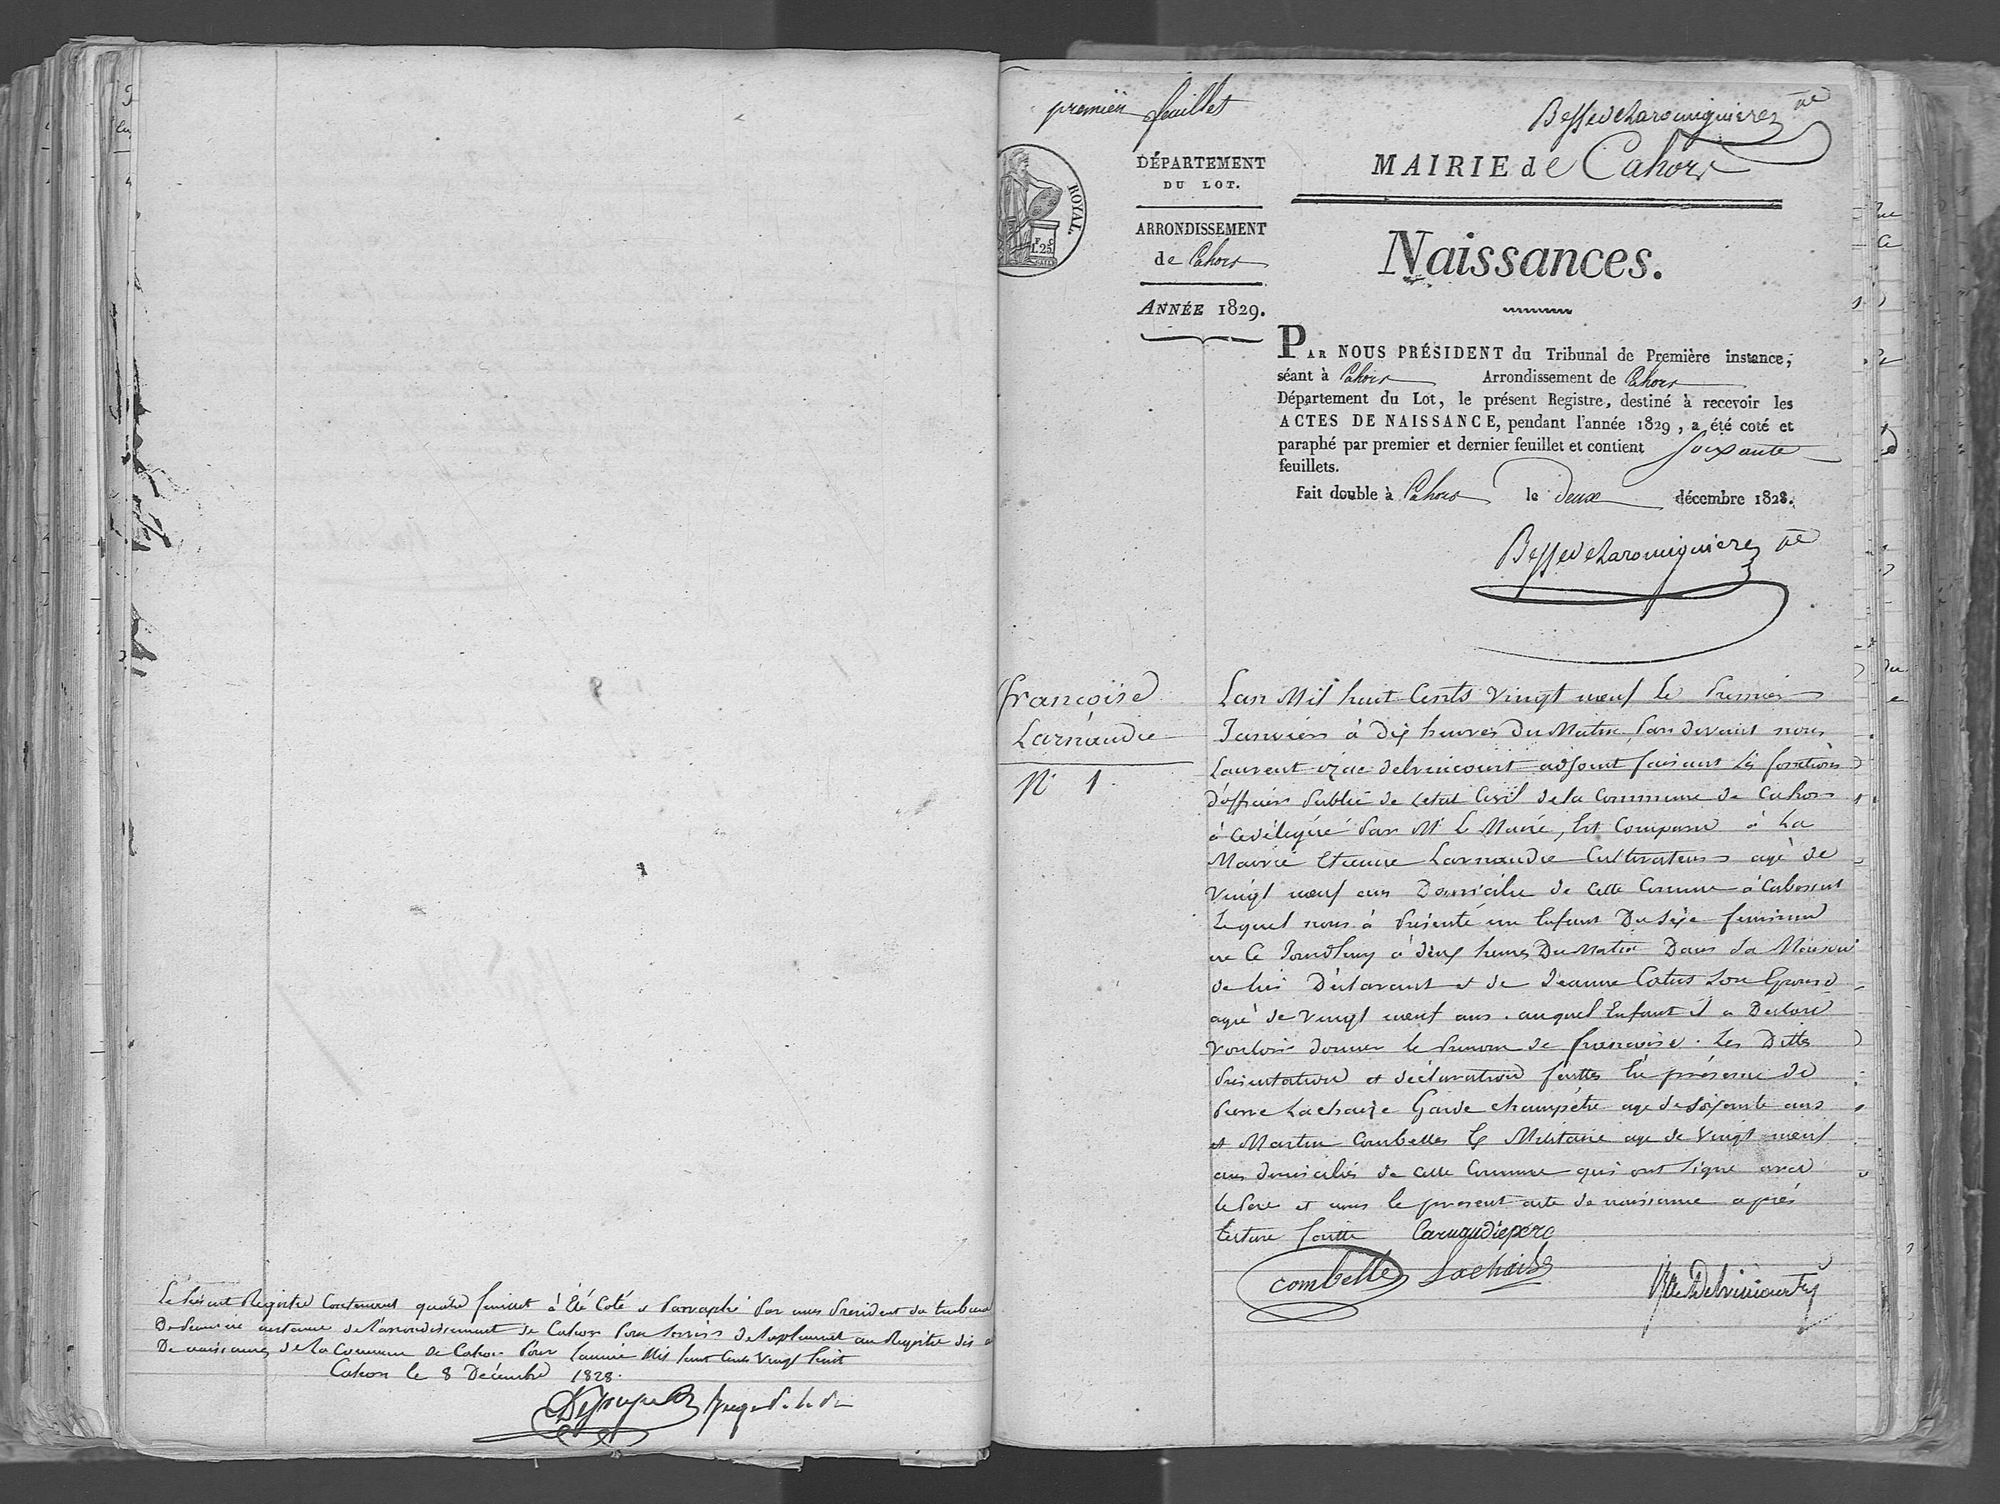 Le présent Registre Contenant quatre feuillet à Eté Coté & Paraphé Par nous President du tribunal
De Premiere instance de l'arrondissement de Cahors Pour servir de suplement au Registre des
De naissances de la Commune de Cahors Pour l'année Mil huit Cents Vingt huit
Cahors le 8 Décembre 1828.
premier feuillet
Bessedelaromiguiere
ROYAL.
1 F 25 C
DÉPARTEMENT
DU LOT.
ARRONDISSEMENT
de Cahors
ANNÉE 1829.
MAIRIE de Cahors
Naissances.
PAR NOUS PRÉSIDENT du Tribunal de Première instance,
séant à Cahors Arrondissement de Cahors
Département du Lot, le présent Registre, destiné à recevoir les
ACTES DE NAISSANCE, pendant l'année 1829, a été coté et
paraphé par premier et dernier feuillet et contient soixante
feuillets.
Fait double à Cahors le deux décembre 1828.
Bessedelaromiguiere
françoise
Larnaudie
N° 1
Lan Mil huit Cents Vingt neuf le Premier
Janvier à dix heures Du Matin, Par devant nous
Laurent izac delvincourt adjoint faisant les fonctions
d'officier Public de letat Civil de la Commune de Cahors
à ce délégué Par Mr le Maire, Est Comparu à La
Mairie Etienne Larnaudie Cultivateur agé de
Vingt neuf ans Domicilié de cette Commune à Cabessut
Lequel nous à Présenté un Enfant Du Sexe feminin
né Ce Jourdhuy à deux heures Du Matin Dans La Maison
de lui Déclarant et de Jeanne Catus Son Epouse
agée de Vingt neuf ans. auquel Enfant il a Declaré
Vouloir donner le Prenom de françoise. Les Dittes
Présentation et déclaration faittes En présence de
Pierre Lachaize Garde champêtre age de Soixante ans
et Martin Combelles Ex Militaire age de Vingt neuf
ans domiciliés de cette Commune qui ont signe avec
le Pere et nous le present acte de naissance après
Lecture faitte Larnaudie pere
combelles Lachaize
Delvincourt